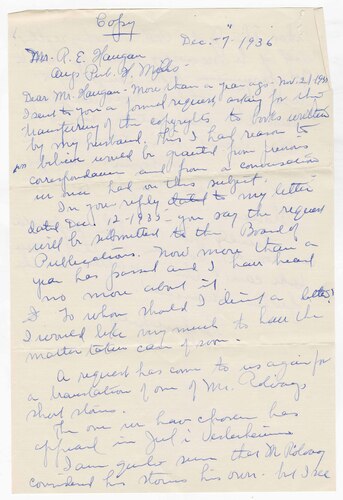 Copy
Dec. 7" 1936
Mr. R. E. Haugan
Augs Pub. H. Mpls-
Dear Mr. Haugan - More than a year ago - Nov. 21 1935
I sent to you a formal request asking for the
transferring of the copyrights to books written
by my husband. This I had reason to
believe would be granted from previous
correspondence and from a conversation
we once had on this subject.
In you reply dated to my letter
dated Dec. 12 - 1935 - you say the request
will be submitted to the Board of
Publications. Now more than a
year has passed and I have heard
no more about it.
To whom should I direct a letter?
I would like very much to have the
matter taken care of soon.
A request has come to us again for
a translation of one of Mr. Rolvaags
short stories.
The one we have chosen has
appeard in Jul i Vesterheimen
I am quite sure that Mr Rolvaag
considered his stories his own - but I see